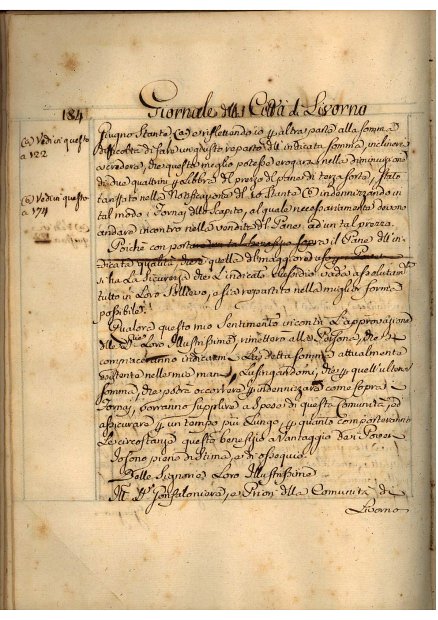 184 Giornale della Città di Livorno
(a) Vedi in questo
a 122
Giugno Stante (a) e riflettendo io p altra parte alla somma
difficoltà di fare un giusto reparto dell'indicata somma, inclinerei
a credere, che questa meglio potesse erogarsi nella diminuzione
di due quattrini p libbra del prezzo del pane di terza sorta, stato
tariffato nella Notificazione del 20 Stante (b) indennizzando in
(b) Vedi in questo
a 174
tal modo i Fornaj dello Scapito, al quale necessariamente devono
andare incontro nella vendita del Pane ad un tal prezzo.
Poichè con portare un tal benefizio sopra il Pane dell'in-
dicata qualità, che è quella di maggiore uso
si ha la sicurezza che l'indicato sussidio vada assolutam.te
tutto in Loro Sollievo, e sia repartito nella miglior forma
possibile.
Qualora questo mio Sentimento incontri l'approvazione
delle Sig.rie Loro Illustrissime, rimetterò alla Persona, che si
compiaceranno indicarmi
esistente nelle mie mani, Lusingandomi, che p quell'ulteriore
somma, che potrà occorrere p indennizzare come sopra i
Fornaj, vorranno supplire a Spese di questa Comunità, ed
assicurare p un tempo più Lungo, p quanto comporteranno
Le circostanze questo benefizio a Vantaggio dei Poveri
Io sono pieno di stima, e di ossequio
Delle Signorie Loro Illustrissime
Ill. SS. Gonfaloniere, e Priori della Comunità di
Livorno